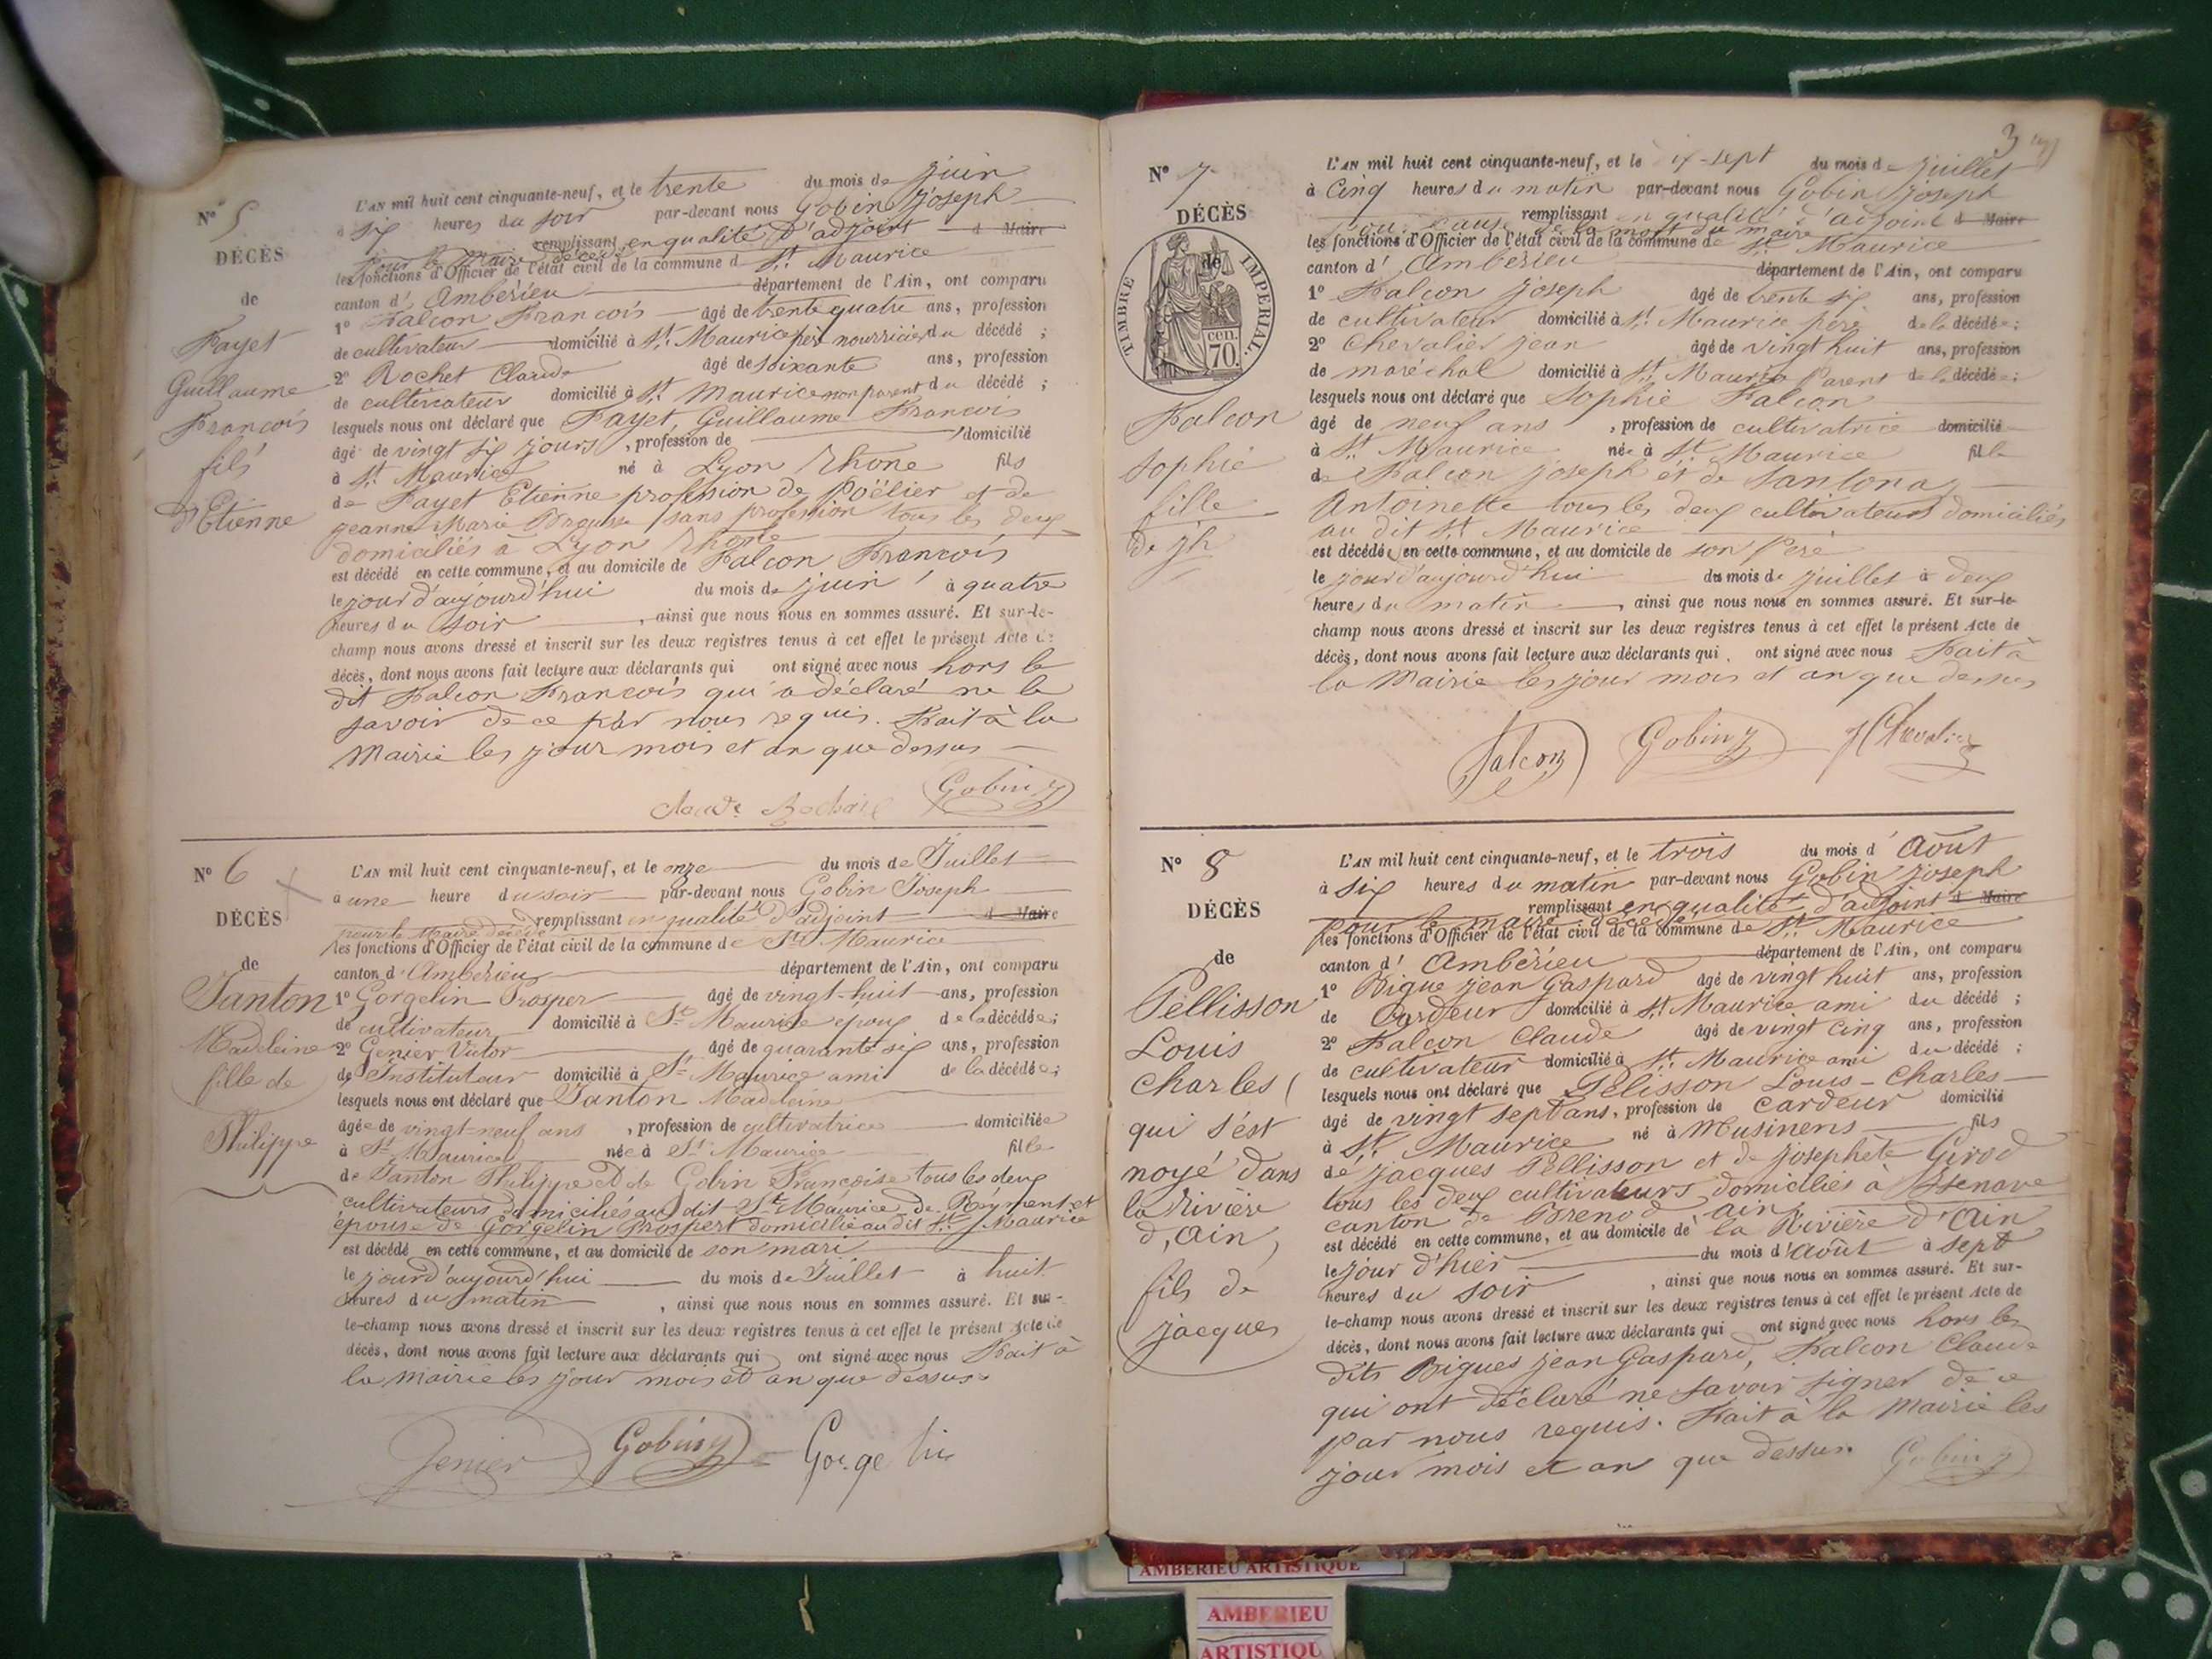 N° 5
DÉCÈS
de
Fayet
Guillaume
François
fils
d'Etienne
L'AN mil huit cent cinquante-neuf, et le trente du mois de juin
à six heures du soir par-devant nous Gobin Joseph
remplissant en qualité d'adjoint d Maire
pour le Maire décédé
les fonctions d'Officier de l'état civil de la commune d St. Maurice
canton d' Ambérieu département de l'Ain, ont comparu
1° Falcon François âgé de trente quatre ans, profession
de cultivateur domicilié à St. Maurice père nourricier du décédé ;
2° Rochet Claude âgé de soixante ans, profession
de cultivateur domicilié à St. Maurice non parent du décédé ;
lesquels nous ont déclaré que Fayet, Guillaume François
âgé de vingt six jours, profession de domicilié
à St. Maurice né à Lyon Rhône fils
de Fayet Etienne profession de Poëlier et de
jeanne Marie sans profession tous les deux
domiciliés à Lyon Rhône
est décédé en cette commune, et au domicile de Falcon François
le jour d'aujourd'hui du mois de juin à quatre
heures du soir , ainsi que nous nous en sommes assuré. Et sur-le-
champ nous avons dressé et inscrit sur les deux registres tenus à cet effet le présent Acte de
décès, dont nous avons fait lecture aux déclarants qui ont signé avec nous hors le
dit Falcon François qui a déclaré ne le
savoir de ce par nous requis. Fait à la
Mairie les jour mois et an que dessus
Gobin j
N° 6
DÉCÈS
de
Tanton
Madeleine
fille de
Philippe
L'AN mil huit cent cinquante-neuf, et le onze du mois de Juillet
à une heure du soir par-devant nous Gobin Joseph
remplissant en qualité d'adjoint d Maire
pour le Maire décédé
les fonctions d'Officier de l'état civil de la commune de St. Maurice
canton d' Ambérieu département de l'Ain, ont comparu
1° Gorgelin Prosper âgé de vingt-huit ans, profession
de cultivateur domicilié à St. Maurice epoux de la décédée ;
2° Genier Victor âgé de quarante six ans, profession
de Instituteur domicilié à St. Maurice ami de la décédée ;
lesquels nous ont déclaré que Tanton Madeleine
âgée de vingt-neuf ans , profession de cultivatrice domiciliée
à St. Maurice née à St. Maurice fille
de Tanton Philippe et de Gobin Françoise tous les deux
cultivateurs domiciliés au dit St. Maurice de Rémens et
épouse de Gorgelin Prospert domicilié au dit St. Maurice
est décédé en cette commune, et au domicile de son mari
le jour d'aujourd'hui du mois de Juillet à huit
heures du matin , ainsi que nous nous en sommes assuré. Et sur-
le-champ nous avons dressé et inscrit sur les deux registres tenus à cet effet le présent Acte de
décès, dont nous avons fait lecture aux déclarants qui ont signé avec nous Fait à
la Mairie les jour mois et an que dessus.
Genier Gobin j Gorgelin
3
N° 7
DÉCÈS
de
TIMBRE IMPERIAL.
70 cen.
Falcon
sophie
fille
de jh
L'AN mil huit cent cinquante-neuf, et le ix-sept du mois de juillet
à Cinq heures du matin par-devant nous Gobin joseph
remplissant en qualité d'adjoint d Maire
pour cause de la mort du maire
les fonctions d'Officier de l'état civil de la commune de St. Maurice
canton d' Ambérieu département de l'Ain, ont comparu
1° Falcon joseph âgé de trente six ans, profession
de cultivateur domicilié à St. Maurice père de la décédée ;
2° Chevalier jean âgé de vingt huit ans, profession
de maréchal domicilié à St. Maurice Parent de la décédée ;
lesquels nous ont déclaré que Sophie Falcon
âgé de neuf ans , profession de cultivatrice domicilié
à St. Maurice née à St. Maurice fille
de Falcon joseph et de Santona
Antoinette tous les deux cultivateurs domiciliés
au dit St. Maurice
est décédée en cette commune, et au domicile de son Père
le jour d'aujourd'hui du mois de juillet à deux
heures du matin , ainsi que nous nous en sommes assuré. Et sur-le-
champ nous avons dressé et inscrit sur les deux registres tenus à cet effet le présent Acte de
décès, dont nous avons fait lecture aux déclarants qui ont signé avec nous Fait à
la Mairie les jour mois et an que dessus
Falcon Gobin j Chevalier
N° 8
DÉCÈS
de
Pellisson
Louis
Charles
qui s'est
noyé dans
la Rivière
d'ain,
fils de
jacques
L'AN mil huit cent cinquante-neuf, et le trois du mois d' Août
à six heures du matin par-devant nous Gobin joseph
remplissant en qualité d'adjoint d Maire
pour le maire décédé
les fonctions d'Officier de l'état civil de la commune de St. Maurice
canton d' Ambérieu département de l'Ain, ont comparu
1° Bigue jean Gaspard âgé de vingt huit ans, profession
de Cardeur domicilié à St. Maurice ami du décédé ;
2° Falcon Claude âgé de vingt cinq ans, profession
de cultivateur domicilié à St. Maurice ami du décédé ;
lesquels nous ont déclaré que Pélisson Louis-Charles
âgé de vingt sept ans, profession de Cardeur domicilié
à St. Maurice né à Musinens fils
de jacques Pellisson et de josephète Girod
tous les deux cultivateurs domiciliés à
canton de Brenod ain
est décédé en cette commune, et au domicile de la Rivière d'Ain
le jour d'hier du mois d'Août à sept
heures du soir , ainsi que nous nous en sommes assuré. Et sur-
le-champ nous avons dressé et inscrit sur les deux registres tenus à cet effet le présent Acte de
décès, dont nous avons fait lecture aux déclarants qui ont signé avec nous hors les
dits Bigues jean Gaspard, Falcon Claude
qui ont déclaré ne savoir signer de ce
par nous requis. Fait à la Mairie les
jour mois et an que dessus. Gobin j
AMBERIEU ARTISTIQUE
AMBERIEU
ARTISTIQU